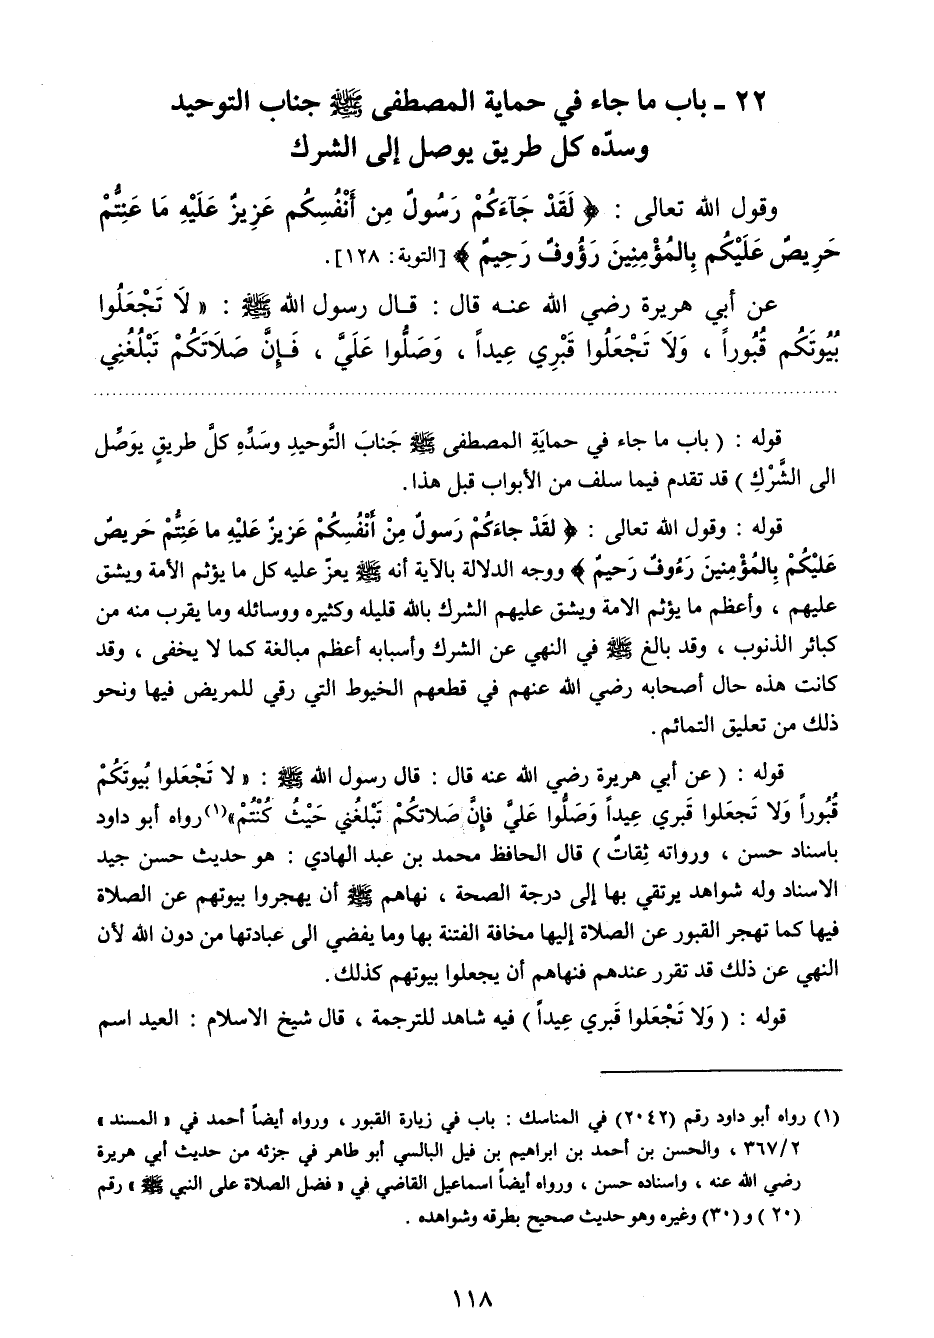 ٢٢ ـ باب ما جاء في حماية المصطفى ﷺ جناب التوحيد
وسدّه كل طريق يوصل إلى الشرك
وقول الله تعالى : ﴿ لَقَدْ جَآءَكُمْ رَسُولٌ مِن أَنْفُسِكُم عَزِيزٌ عَلَيْهِ مَا عَنِتُّمْ
حَرِيصٌ عَلَيْكُم بِالمُؤْمِنِينَ رَؤُوفٌ رَحِيمٌ ﴾ [التوبة: ١٢٨].
عن أبي هريرة رضي الله عنـه قال : قـال رسول الله ﷺ : « لَا تَجْعَلُوا
بُيُوتَكُم قُبُوراً ، وَلَا تَجْعَلُوا قَبْرِي عِيداً ، وَصَلُّوا عَلَيَّ ، فَـإِنَّ صَلَاتَكُمْ تَبْلُغُنِي
قوله : ( باب ما جاء في حمايَةِ المصطفى ﷺ جَنابَ التَّوحيدِ وسَدِّهِ كلَّ طريقٍ يوَصِّل
الى الشَّرْكِ ) قد تقدم فيما سلف من الأبواب قبل هذا.
قوله : وقول الله تعالى : ﴿ لقَدْ جاءَكُمْ رَسولٌ مِنْ أَنْفُسِكُمْ عَزيزٌ عَليْهِ ما عَنِتُّمْ حَريصٌ
عَليْكُمْ بِالمُؤْمِنينَ رَءُوفٌ رَحيمٌ ﴾ ووجه الدلالة بالآية أنه ﷺ يعزّ عليه كل ما يؤثم الأمة ويشق
عليهم ، وأعظم ما يؤثم الامة ويشق عليهم الشرك بالله قليله وكثيره ووسائله وما يقرب منه من
كبائر الذنوب ، وقد بالغ ﷺ في النهي عن الشرك وأسبابه أعظم مبالغة كما لا يخفى ، وقد
كانت هذه حال أصحابه رضي الله عنهم في قطعهم الخيوط التي رقي للمريض فيها ونحو
ذلك من تعليق التمائم.
قوله : ( عن أبي هريرة رضي الله عنه قال : قال رسول الله ﷺ : « لا تَجْعَلوا بُيوتَكُمْ
قُبُوراً وَلا تَجعَلوا قَبري عِيداً وَصَلُّوا عَليَّ فإِنَّ صَلاتكُمْ تَبْلُغُني حَيْثُ كُنْتُمْ»(١)رواه أبو داود
باسناد حسن ، ورواته ثِقاتٌ ) قال الحافظ محمد بن عبد الهادي : هو حديث حسن جيد
الاسناد وله شواهد يرتقي بها إلى درجة الصحة ، نهاهم ﷺ أن يهجروا بيوتهم عن الصلاة
فيها كما تهجر القبور عن الصلاة إليها مخافة الفتنة بها وما يفضي الى عبادتها من دون الله لأن
النهي عن ذلك قد تقرر عندهم فنهاهم أن يجعلوا بيوتهم كذلك.
قوله : ( وَلا تَجْعَلوا قَبري عِيداً ) فيه شاهد للترجمة ، قال شيخ الاسلام : العيد اسم
(١) رواه أبو داود رقم (٢٠٤٢) في المناسك : باب في زيارة القبور ، ورواه أيضاً أحمد في « المسند »
٣٦٧/٢ ، والحسن بن أحمد بن ابراهيم بن فيل البالسي أبو طاهر في جزئه من حديث أبي هريرة
رضي الله عنه ، واسناده حسن ، ورواه أيضاً اسماعيل القاضي في « فضل الصلاة على النبي ﷺ » رقم
(٢٠ ) و (٣٠) وغيره وهو حديث صحيح بطرقه وشواهده .
١١٨